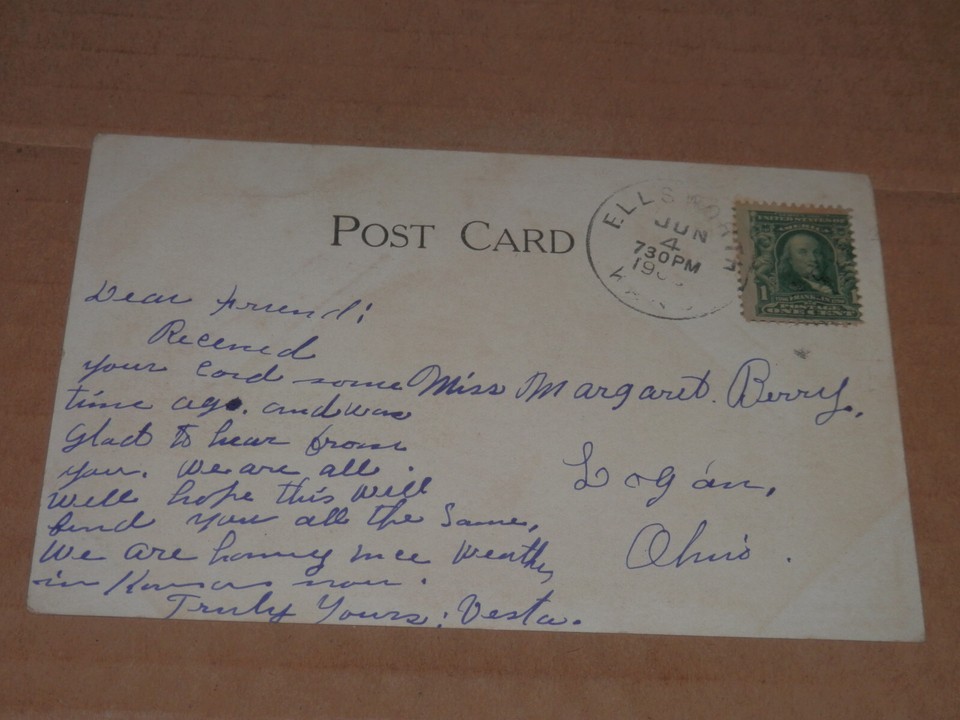 POST CARD
ELLSWORTH
JUN
4
730PM
UNITED STATES OF
AMERICA
1
POSTAGE
ONE CENT
Dear Friend:
Received
your card some
time ago. and was
glad to hear from
you. We are all.
well hope this will
find you all the same,
We are having nice weather
in Kansas now.
Truly Yours: Vesta.
Miss Margaret. Berry.
Logan,
Ohio.